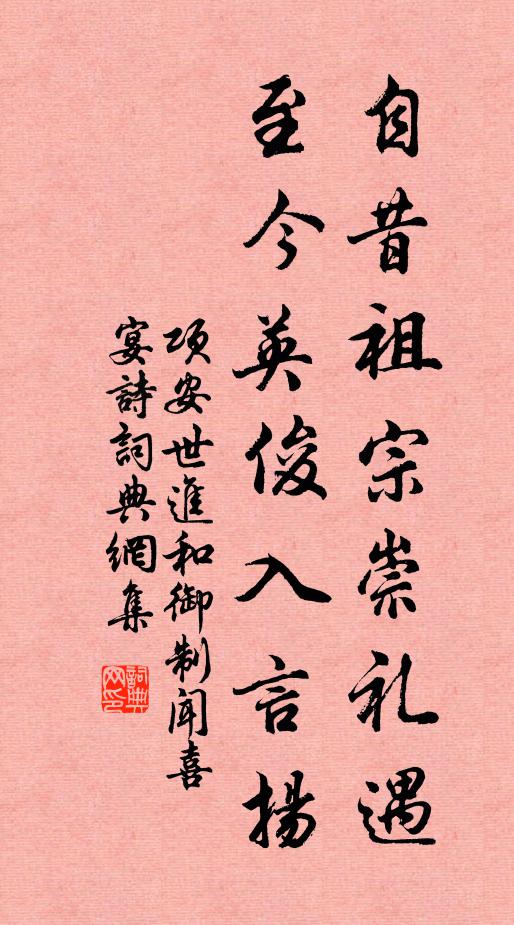 自昔祖宗崇礼遇
至今英俊入言揚
项安世進和御制闻喜
宴詩詞典網集
詞典网印